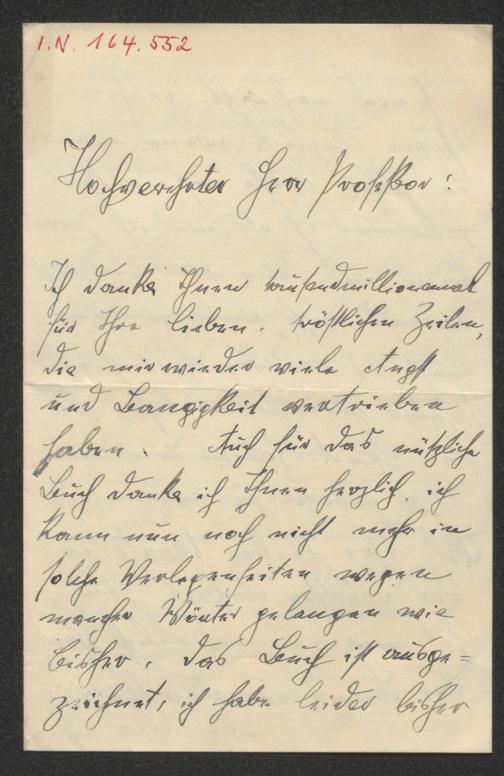 I.N. 164.552
Hochverehrter Herr Professor!
Ich danke Ihnen tausendmillionenmal
für Ihre lieben, tröstlichen Zeilen,
die mir wieder viele Angst
und Bangigkeit vertrieben
haben. Auch für das nützliche
Buch danke ich Ihnen herzlich, ich
kann nun noch nicht mehr in
solche Verlegenheiten wegen
mancher Wörter gelangen wie
bisher. Das Buch ist ausge=
zeichnet, ich habe leider bisher